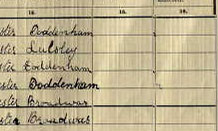 ster Doddenham
ster Lulsley
ster Doddenham
ester Doddenham
ester Broadwas
ester Broadwas